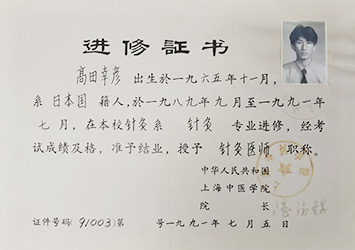 进修証书
髙田幸彦 出生於一九六五年十一月，
系 日本国 籍人，於一九八九年九月至一九九一年
七月，在本校针灸系 针灸 专业进修，经考
试成绩及格，准予结业，授予 针灸医师 职称。
中华人民共和国
上海中医学院
院 长
证件号码(91003)第 号一九九一年 七月 五日